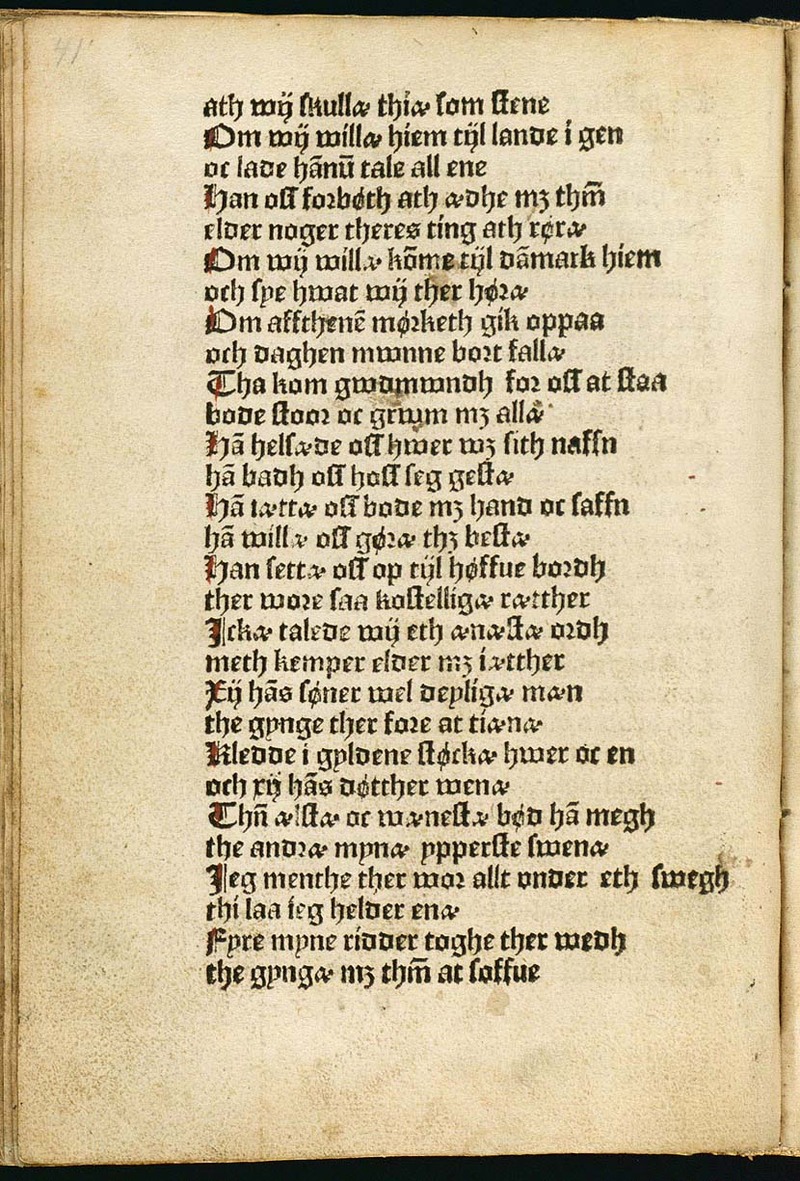 41
ath wij skullæ thiæ som stene
Om wij willæ hiem tijl lande i gen
oc lade hānū tale all ene
Han oss forbøth ath ædhe mꝫ thm̄
elder noger theres ting ath røræ
Om wij willæ kōme tijl dāmark hiem
och sye hwat wij ther høræ
Om affthenē mørketh gik oppaa
och daghen mwnne bort fallæ
Tha kom gwdmwndh for oss at staa
bode stoor oc grwm mꝫ allæ
Hā helsæde oss hwer wꝫ sith naffn
hā badh oss hoss seg gestæ
Hā iættæ oss bode mꝫ hand oc saffn
hā willæ oss gøræ thꝫ bestæ
Han settæ oss op tijl høffue bordh
ther wore saa kostelligæ rætther
Ickæ talede wij eth ænæstæ ordh
meth kemper elder mꝫ iætther
Xij hās søner wel deyligæ mæn
the gynge ther fore at tiænæ
Kledde i gyldene støckæ hwer oc en
och xij hās døtther wenæ
Thn̄ ælstæ oc wænestæ bød hā megh
the andræ mynæ ypperste swenæ
Jeg menthe ther wor allt vnder eth swegh
thi laa ieg helder enæ
Fyre myne ridder toghe ther wedh
the gyngæ mꝫ thm̄ at soffue